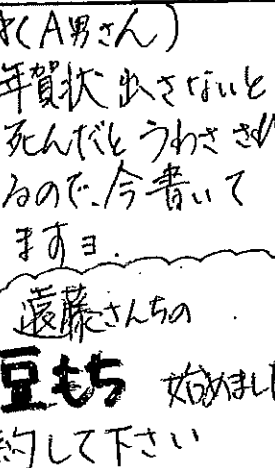 (A男さん)
年賀状出さないと
死んだと うわさされ
るので、今書いて
ますヨ.
遠藤さんちの
豆もち 始めまし
約して下さい